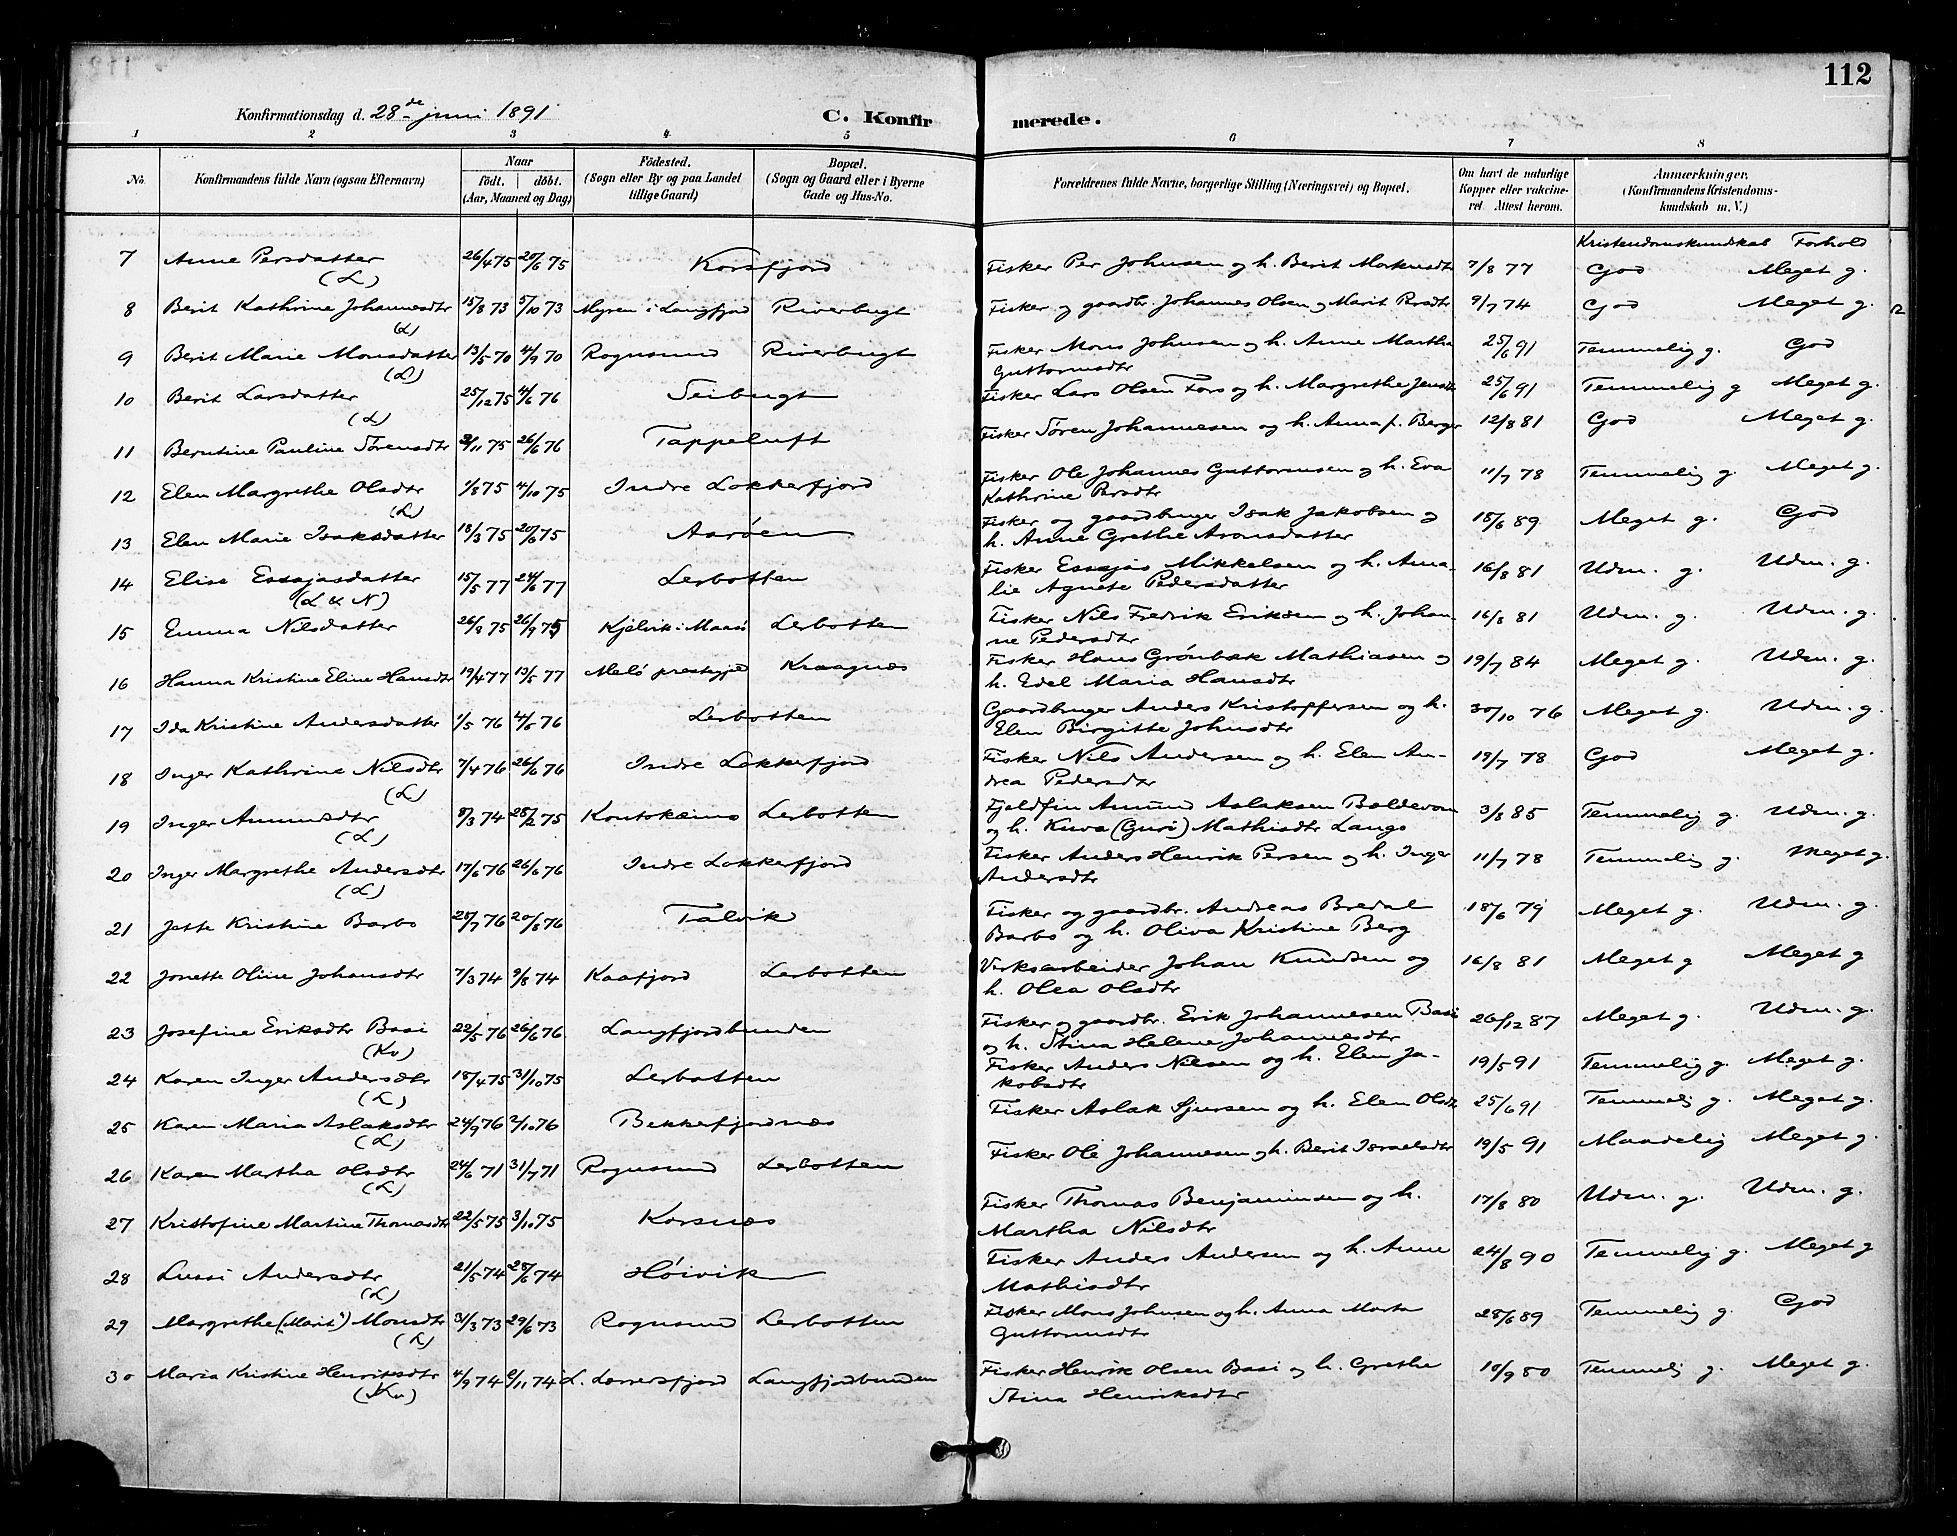 112
Konfirmationsdag d. 28de juni 1891
C. Konfirmerede.
1 2 3 4 5 6 7 8
No. Konfirmandens fulde Navn (ogsaa Efternavn) Naar födt. döbt. (Aar, Maaned og Dag) Födested. (Sogn eller By og paa Landet tillige Gaard) Bopæl. (Sogn og Gaard eller i Byerne Gade og Hus-No. Forældrenes fulde Navne, borgerlige Stilling (Næringsvei) og Bopæl. Om havt de naturlige Kopper eller vakcineret Attest herom. Anmærkninger. (Konfirmandens Kristendomskundskab m. V.)
Kristendomskundskab Forhold
7 Anne Persdatter (L) 26/4 75 20/6 75 Korsfjord Fisker Per Johnsen og h. Berit 7/8 77 God Meget g.
8 Berit Kathrine Johannesdtr (L) 15/8 73 5/10 73 Myren i Langfjord Riverbugt Fisker og gaardbr. Johannes Olsen og Marit Persdtr 9/7 74 God Meget g.
9 Berit Marie Monsdatter (L) 13/5 70 4/9 70 Rognsund Riverbugt Fisker Mons Johnsen og h. Anne Martha
Guttormsdtr 25/6 91 Temmelig g. God
10 Berit Larsdatter (L) 25/12 75 4/6 76 Seibugt Fisker Lars Olsen Fors og h. Margrethe Jensdtr 25/6 91 Temmelig g Meget g.
11 Berntine Pauline Sörensdtr 2/11 75 26/6 76 Tappeluft Fisker Sören Johannesen og h. Anna f. Berger 12/8 81 God Meget g.
12 Elen Margrethe Olsdtr (L) 1/8 75 4/10 75 Indre Lokkerfjord Fisker Ole Johannes Guttormsen og h. Eva
Kathrine Persdtr 11/7 78 Temmelig g. Meget g.
13 Elen Marie Isaksdatter 18/3 75 20/6 75 Aaröen Fisker og gaardbruger Isak Jakobsen og
h. Anne Grethe Aronsdatter 18/6 89 Meget g. God
14 Elise Essajasdatter (L & N) 15/5 77 24/6 77 Lerbotten Fisker Essajas Mikkelsen og h. Ama-
lie Agnete Pedersdatter 16/8 81 Udm. g. Udm. g.
15 Emma Nilsdatter 26/8 75 26/9 75 Kjelvik i Maasö Lerbotten Fisker Nils Fredrik Eriksen og h. Johan-
ne Pedersdtr 16/8 81 Udm. g. Udm. g.
16 Hanna Kristine Eline Hansdtr 19/4 77 13/5 77 Melö prestegjeld Kraagnes Fisker Hans Grönbæk Mathiasen og
h. Edel Maria Hansdtr 19/7 84 Meget g. Udm. g.
17 Ida Kristine Andersdatter 1/5 76 4/6 76 Lerbotten Gaardbruger Anders Kristoffersen og h.
Elen Birgitte Johnsdtr 30/10 76 Meget g. Udm. g.
18 Inger Kathrine Nilsdtr (L) 7/4 76 26/6 76 Indre Lokkerfjord Fisker Nils Andersen og h. Elen An-
drea Pedersdtr 19/7 78 God Meget g.
19 Inger Amundsdtr (L) 8/3 74 28/2 75 Koutokæino Lerbotten Fjeldfin Amund Aslaksen Bældevom
og h. Kuva (Guri) Mathisdtr Lango 3/8 85 Temmelig g. Udm. g.
20 Inger Margrethe Andersdtr (L) 17/6 76 26/6 76 Indre Lokkerfjord Fisker Anders Henrik Persen og h. Inger
Andersdtr 11/7 78 Temmelig g. Meget g.
21 Jette Kristine Barbo 28/7 76 20/8 76 Talvik Fisker og gaardbr. Andreas Bredal
Barbo og h. Oliva Kristine Berg 18/6 79 Meget g. Udm. g.
22 Jonette Oline Johansdtr 7/3 74 9/8 74 Kaafjord Lerbotten Verksarbeider Johan Knudsen og
h. Olea Olsdtr 16/8 81 Meget g Meget g
23 Josefine Eriksdtr Basi (Kv) 22/5 76 26/6 76 Langfjordbunden Fisker og gaardbr. Erik Johannesen Basi
og h. Stina Helene Johannesdtr 26/12 87 Meget g. Udm. g.
24 Karen Inger Andersdtr (L) 18/4 75 31/10 75 Lerbotten Fisker Anders Nilsen og h. Elen Ja-
kobsdtr 19/5 91 Temmelig g. Meget g.
25 Karen Maria Aslaksdtr (L) 24/9 76 2/10 76 Bekkerfjordnes Fisker Aslak Sjursen og h. Elen Olsdtr 25/6 91 Temmelig g. Meget g.
26 Karen Martha Olsdtr (L) 24/6 71 31/7 71 Rognsund Lerbotten Fisker Ole Johannesen og h. Berit Israelsdtr 19/5 91 Maadelig Meget g.
27 Kristofine Martine Thomasdtr 22/5 75 3/10 75 Korsnes Fisker Thomas Benjaminsen og h.
Martha Nilsdtr 17/8 80 Udm. g. Udm. g.
28 Lussi Andersdtr (L) 21/5 74 28/6 74 Höivik Fisker Anders Andersen og h. Anne
Mathisdtr 24/8 90 Temmelig g. Meget g
29 Margrethe (Marit) Monsdtr (L) 31/3 73 29/6 73 Rognsund Lerbotten Fisker Mons Johnsen og h. Anna Marta
Guttormsdtr 28/6 89 Temmelig g. God
30 Maria Kristine Henriksdtr (Kv) 4/9 74 2/11 74 L. Lerresfjord Langfjordbunden Fisker Henrik Olsen Basi og h. Grethe
Stina Henriksdtr 10/9 80 Temmelig g. Meget g.